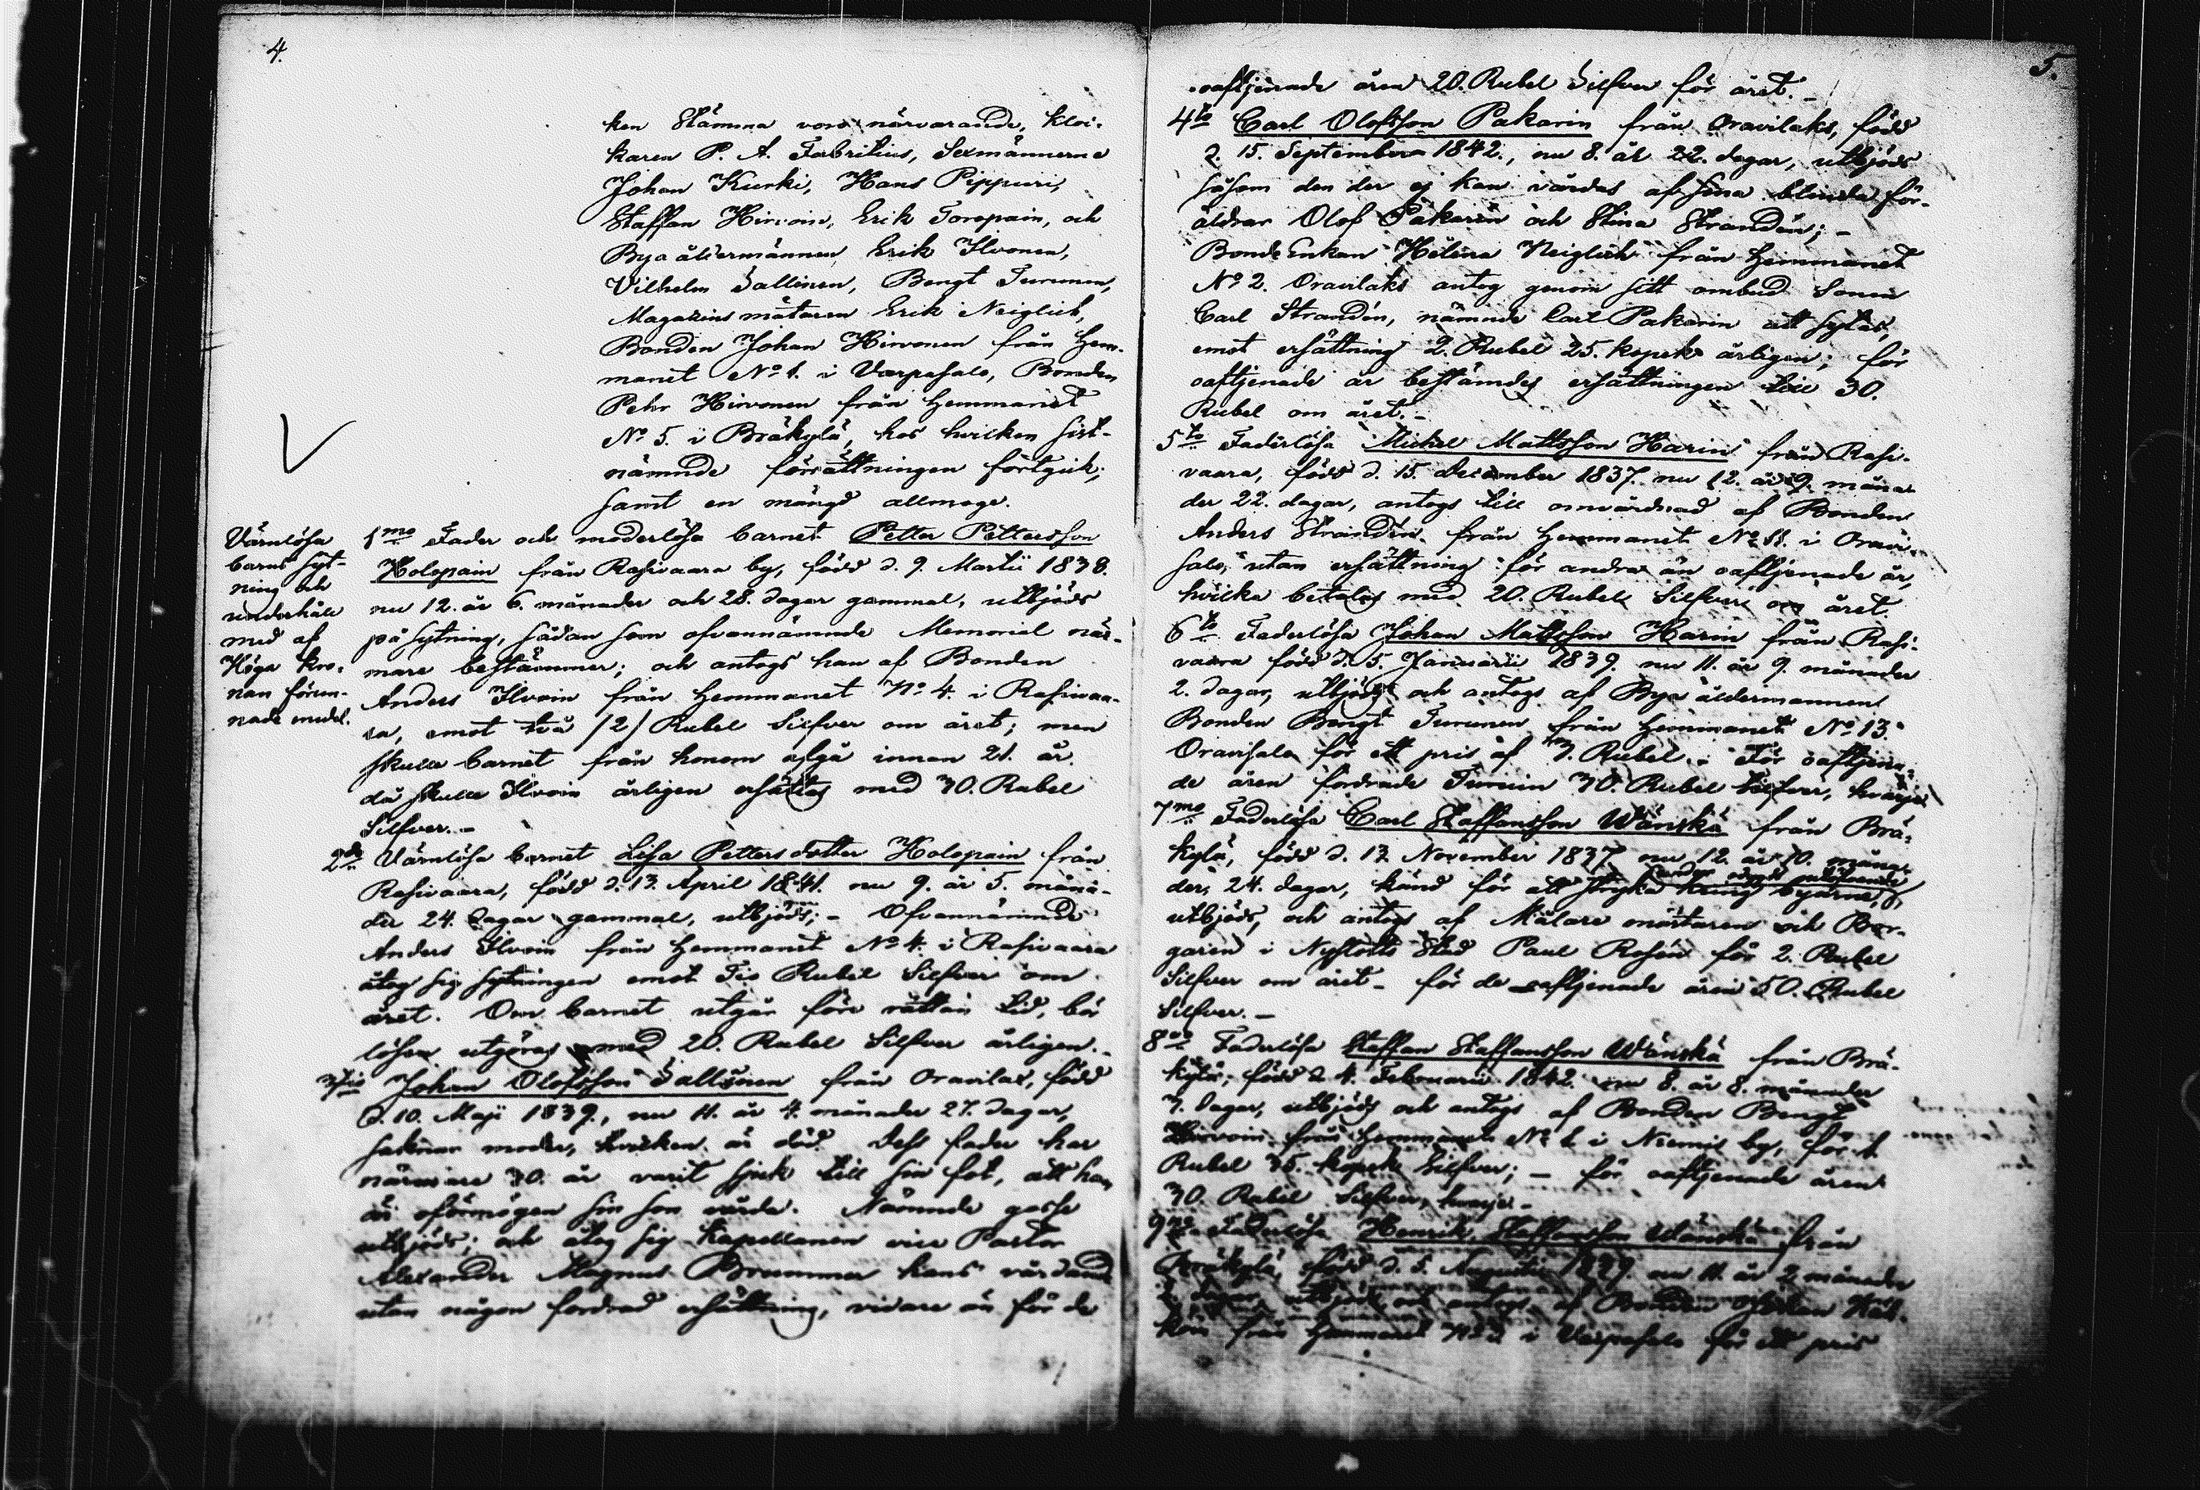 4.
ken Stämma voro närvarande, kloc-
karen P. A. Fabritius, Sexmännerne
Johan Kurki, Hans Pippuri,
Staffan Hirvoin, Erik Toropain, och
Bya åldermännen Erik Ilvonen,
Vilhelm Sallinen, Bengt Turunen,
Magazins mätaren Erik Neiglick,
Bonden Johan Hirvonen från Hem-
manet No 1. i Varpasalo, Bonden
Pehr Hirvonen från Hemmanet
No 5. i Bräkylä, hos hvilken sist-
nämnde förrättningen förtgick;
samt en mängd allmoge.
Värnlösa
barns syt-
ning och
underhåll
med af
Höga kro-
nan förun-
nade medel.
1mo Fader och moderlösa barnet Petter Pettersson
Holopain från Rasivaara by, född d. 9. Martii 1838.
nu 12. år 6. månader och 28. dagar gammal, utbjöds
på sytning, sådan som ofvannämnde Memorial när-
mare bestämmer; och antogs han af Bonden
Anders Ilvoin från Hemmanet No 4. i Rasivaa-
ra, emot två /2/ Rubel Silfver om året; men
skulle barnet från honom afgå innan 21. år
då skulle Ilvoin årligen ersättas med 30. Rubel
Silfver. –
2do Värnlösa barnet Lisa Pettersdotter Holopain från
Rasivaara, född d. 13. April 1841. nu 9. år 5. måna-
der 24. dagar gammal, utbjöds; – Ofvannämnde
Anders Ilvoin från Hemmanet No 4. i Rasivaara
åtog sig sytningen emot Tio Rubel Silfver om
året. Om barnet utgår före rättan tid, bör
lösen utgöras med 20. Rubel Silfver årligen. –
3tio Johan Olofsson Sallinen från Oravilax, född
d. 10. Maji 1839., nu 11. år 4. månader 27. dagar,
saknar moder, hvilken är död. Dess fader har
närmare 30. år varit sjuk till sin fot, att han
är oförmögen sin son vårda. Nämnde gosse
utbjöds; och åtog sig Kapellanen vice Pastor
Alexander Magnus Brummer hans vårdand
utan någon fordrad ersättning, vidare än för de
5.
oaftjenade åren 20. Rubel Silfver för året. –
4to Carl Olofsson Pakarin från Oravilaks, född
d. 15. September 1842., nu 8. år 22. dagar, utbjöds
såsom den der ej kan vårdas af sina blinda för-
äldrar Olof Pakarin och Stina Strandén; –
Bonde Enkan Helena Neiglick från Hemmanet
No 2. Oravilaks antog genom sitt ombud Sonen
Carl Strandén, nämnde Carl Pakarin att sytas,
emot ersättning 2. Rubel 25. kopek årligen; för
oaftjenade år bestämdes ersättningen till 30.
Rubel om året. –
5to Faderlösa Michel Mattsson Harin från Rasi-
vaara, född d. 15. December 1837. nu 12. år 9. måna-
der 22. dagar, antogs till omvårdnad af Bonden
Anders Strandén från Hemmanet No 11. i Oravi-
salo, utan ersättning för andra än oaftjenade år,
hvilka betalas med 20. Rubel Silfver om året.
6to Faderlösa Johan Mattsson Harin från Rasi-
vaara född d. 5. Januarii 1839. nu 11. år 9. månader
2. dagar, utbjöds och antogs af Bya åldermannen
Bonden Bengt Turunen från Hemmanet No 13.
Oravisalo för ett pris af 3. Rubel. För oaftjena-
de åren fordrade Turuin 30. Rubel Silfver, hvarje
7mo Faderlösa Carl Staffansson Wänskä från Brä-
kylä, född d. 13. November 1837. nu 12. år 10. måna-
der, 24. dagar, känd för att stryka kring byarne,
utbjöds, och antogs af Målare mästaren och Bor-
garen i Nyslotts Stad Paul Rosén för 2. Rubel
Silfver om året – för de oaftjenade åren 50. Rubel
Silfver. –
8vo Faderlösa Staffan Staffansson Wänskä från Brä-
kylä, född d. 4. Februarii 1842. nu 8. år 8. månader
3. dagar, utbjöds och antogs af Bonden Bengt
Hirvoin från Hemmanet No 1. i Niemis by, för 1.
Rubel 75. kopek Silfver; – för oaftjenade åren
30. Rubel Silfver, hvarje. –
9no Faderlösa Henrik Staffansson Wänskä från
Bräkylä, född d. 5. Augustii 1839. nu 11. år 2 månader
2. dagar, utbjöds och antogs af Bonden Johan
från Hemmanet No 3. i Varpasalo för ett pris